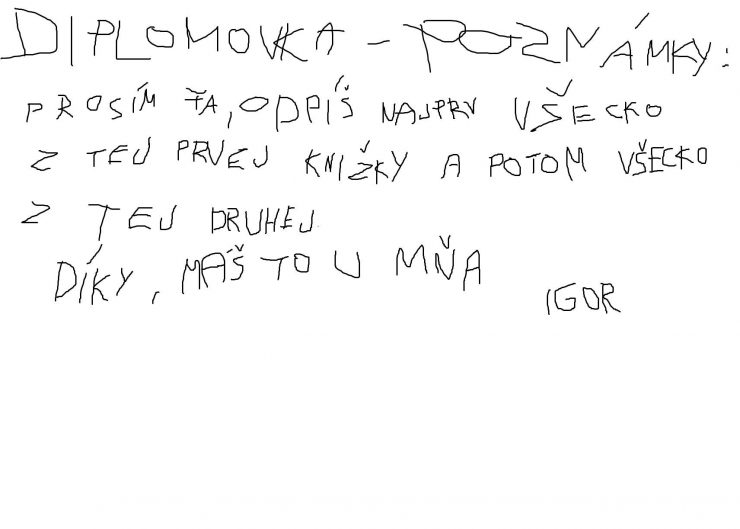 DIPLOMOVKA - POZNÁMKY:
PROSÍM ŤA, ODPÍŠ NAJPRV VŠECKO
Z TEJ PRVEJ KNIŽKY A POTOM VŠECKO
Z TEJ DRUHEJ
DÍKY, MÁŠ TO U MŇA
IGOR